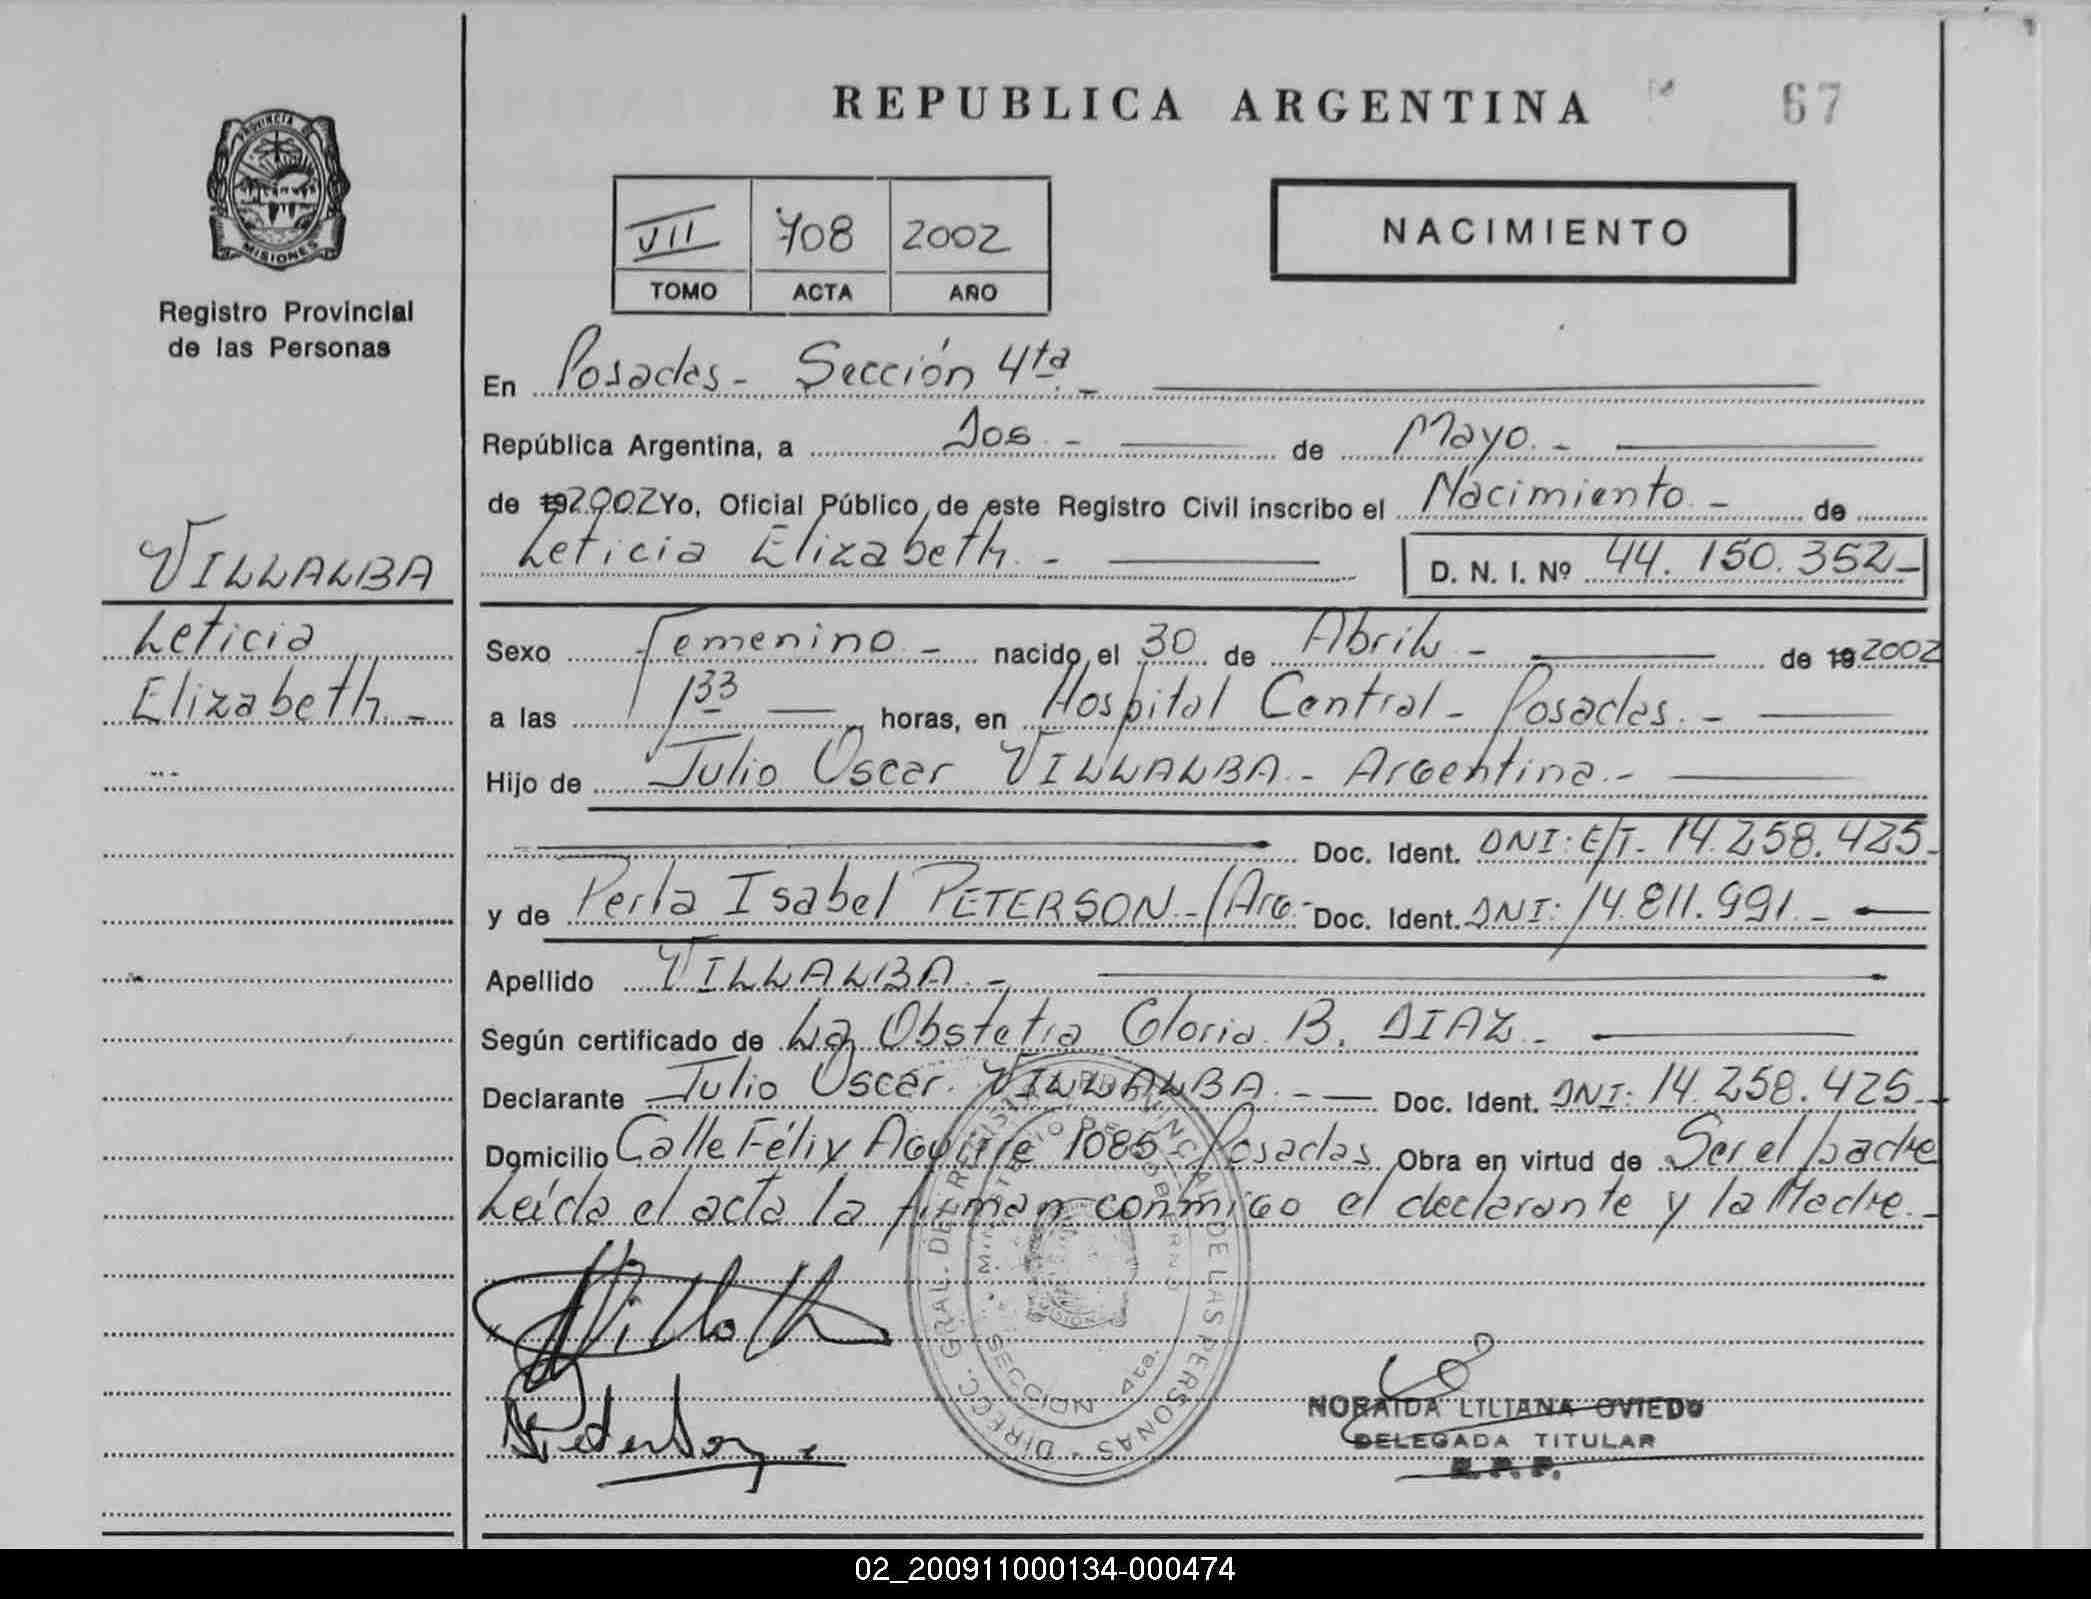 REPUBLICA ARGENTINA
67
PROVINCIA DE
MISIONES
Registro Provincial
de las Personas
VII 708 2002
TOMO ACTA AÑO
NACIMIENTO
En Posadas - Sección 4ta -
República Argentina, a Dos - de Mayo. -
de 192002 Yo, Oficial Público de este Registro Civil inscribo el Nacimiento - de
Leticia Elizabeth. - D. N. I. Nº 44.150.352-
VILLALBA
Leticia
Elizabeth. -
Sexo Femenino - nacido el 30 de Abril - de 19 2002
a las 1 33 horas, en Hospital Central - Posadas. -
Hijo de Julio Oscar VILLALBA - Argentina. -
Doc. Ident. DNI: E/T. 14.258.425.-
y de Perla Isabel PETERSON - /Arg. - Doc. Ident. DNI: 14.811.991. -
Apellido VILLALBA. -
Según certificado de La Obstetra Gloria B. DIAZ -
Declarante Julio Oscar VILLALBA. - Doc. Ident. DNI: 14.258.425.-
Domicilio Calle Félix Aguirre 1085 Posadas Obra en virtud de Ser el padre
Leída el acta la firman conmigo el declarante y la Madre. -
DIRECC. GRAL. DEL REGISTRO PROVINCIAL DE LAS PERSONAS
MINISTERIO DE GOBIERNO
SECCION 4ta.
NORAIDA LILIANA OVIEDO
DELEGADA TITULAR
R. P. P.
02_200911000134-000474